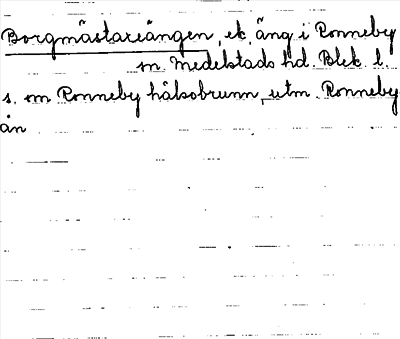 Borgmästareängen, ek. äng i Ronneby
sn. Medelstads hd. Blek. l.
s. om Ronneby hälsobrunn, utm. Ronneby
ån